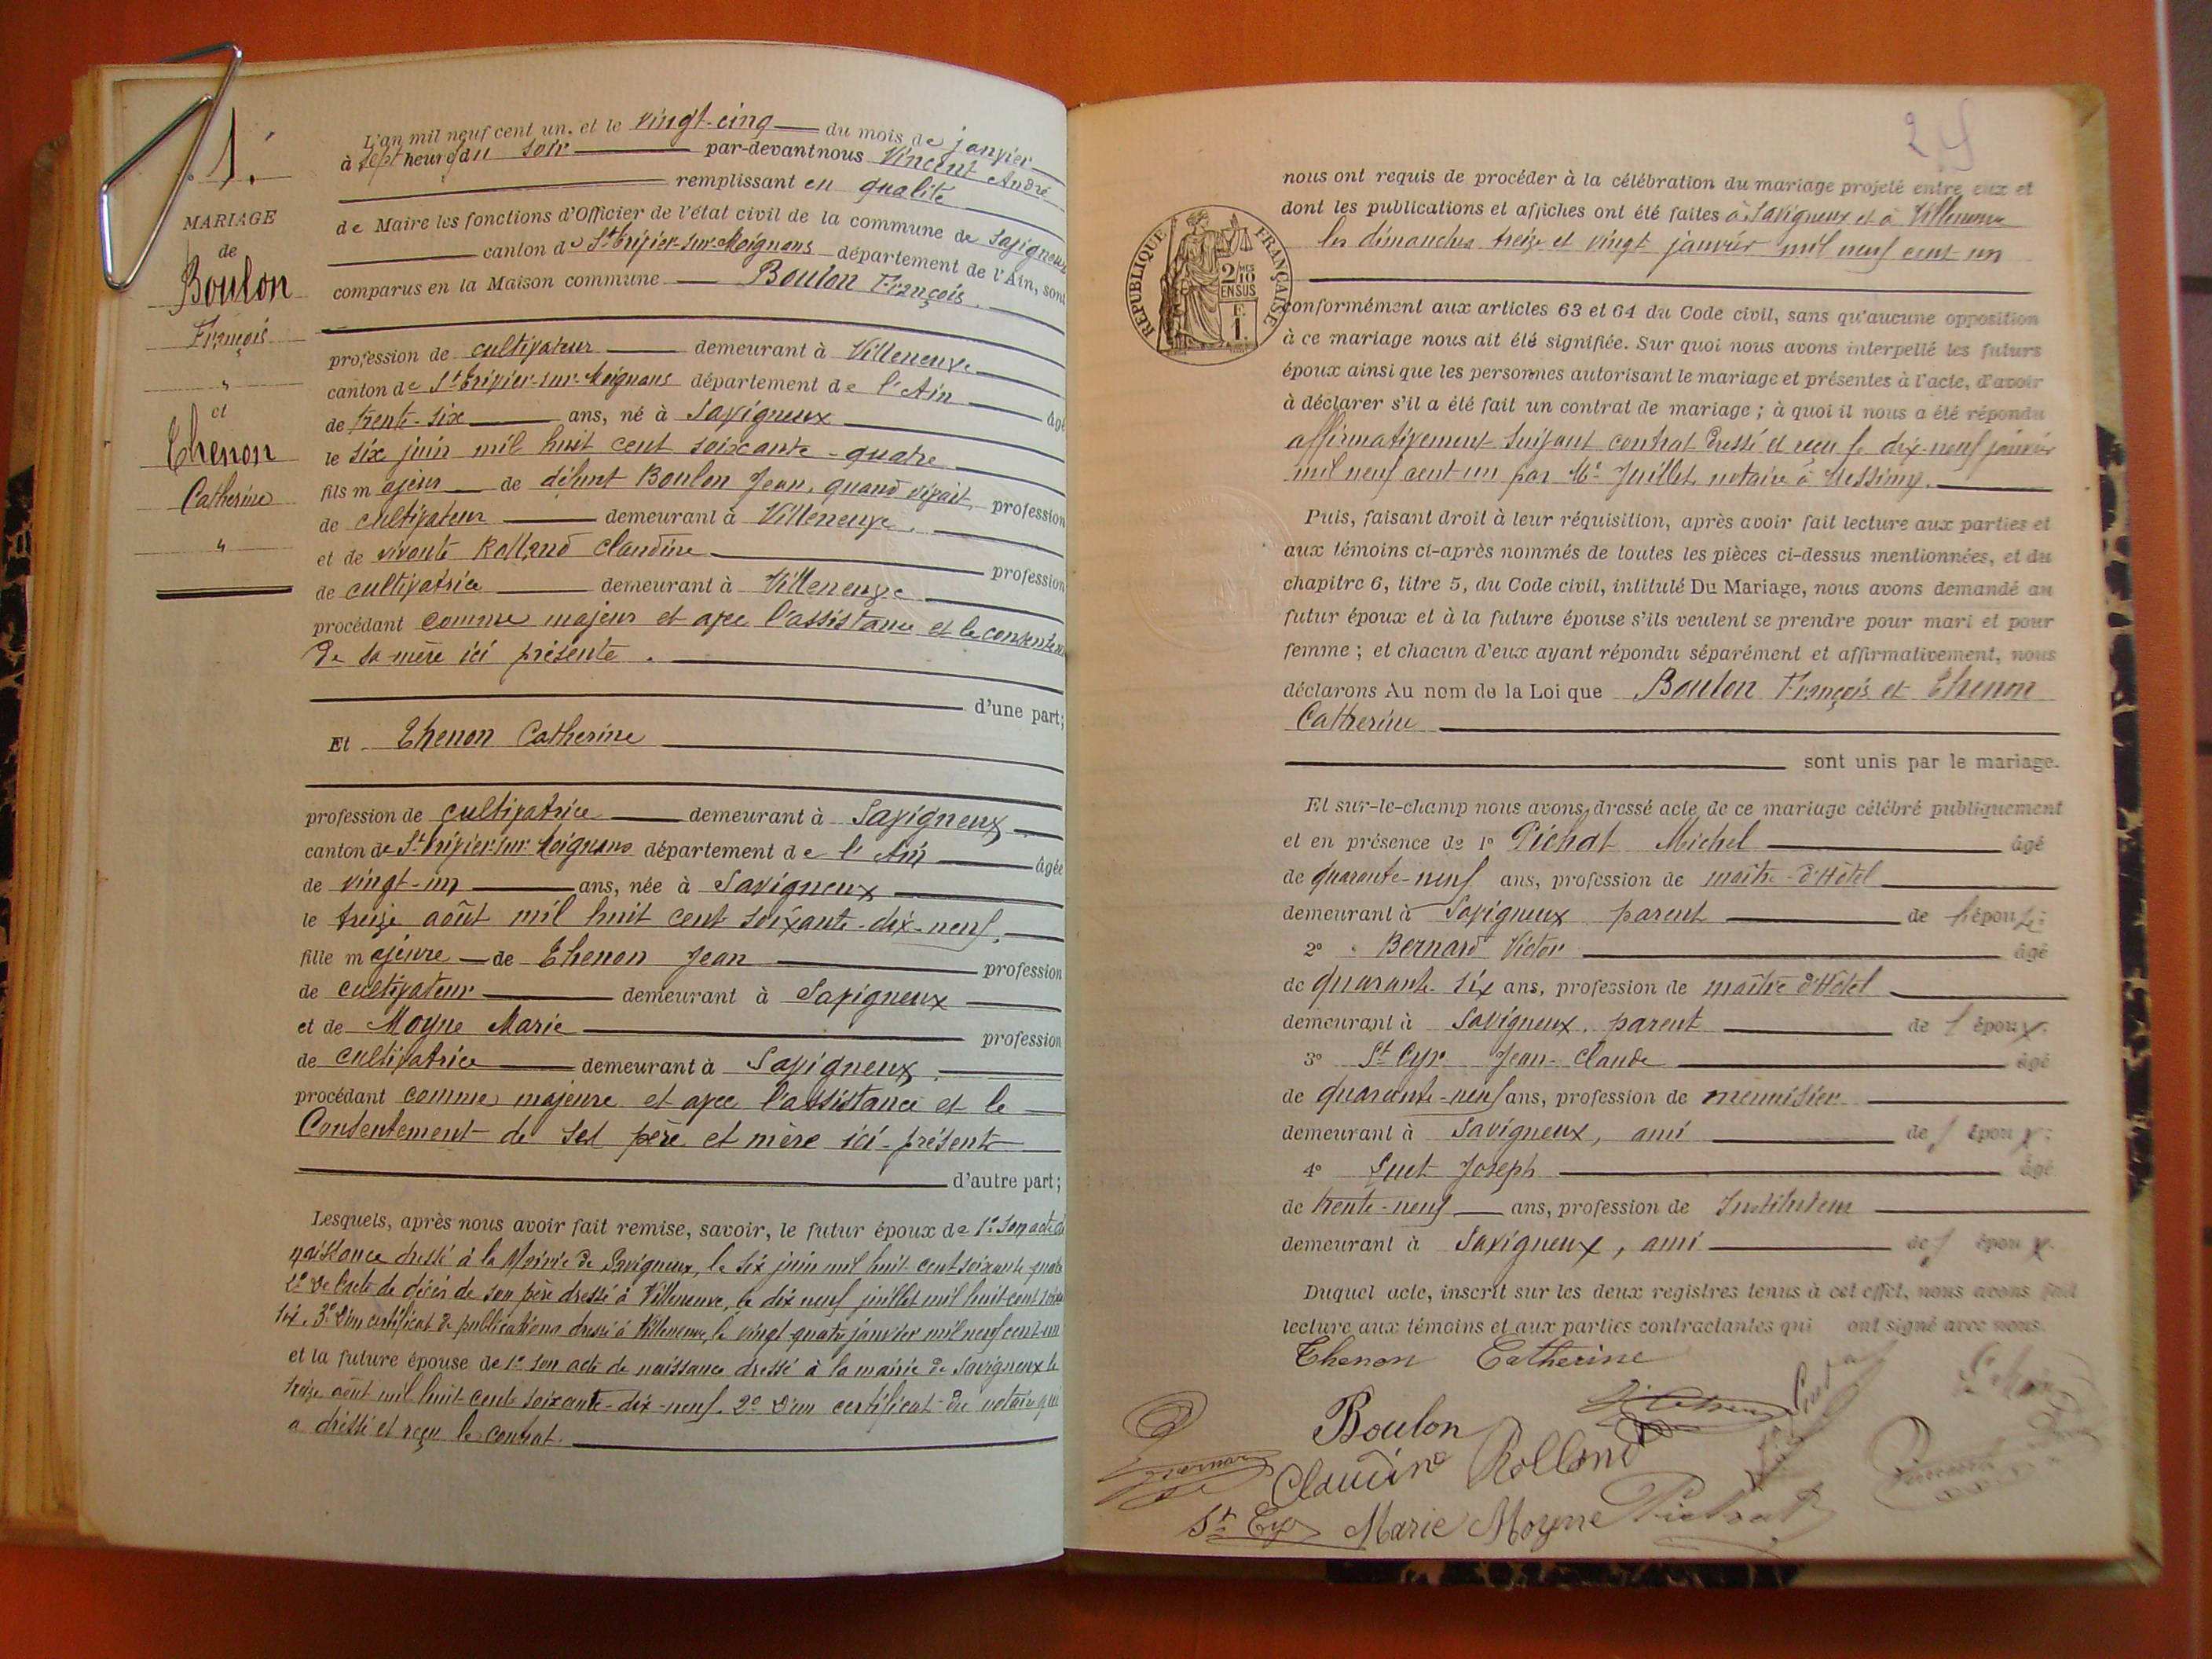 1.
MARIAGE
de
Boulon
François
"
et
Thenon
Catherine
"
L'an mil neuf cent un, et le vingt-cinq du mois de janvier
à sept heures du soir par-devant nous Vincent André
remplissant en qualité
de Maire les fonctions d'Officier de l'état civil de la commune de Savigneux
canton de St Trivier-sur-Moignans département de l'Ain, sont
comparus en la Maison commune Boulon François,
profession de cultivateur demeurant à Villeneuve
canton de St Trivier-sur-Moignans département de l'Ain âgé
de trente-six ans, né à Savigneux
le six juin mil huit cent soixante-quatre
fils majeur de défunt Boulon Jean, quand vivait, profession
de cultivateur demeurant à Villeneuve,
et de vivante Rolland Claudine profession
de cultivatrice demeurant à Villeneuve
procédant comme majeur et avec l'assistance et le
de sa mère ici présente.
d'une part;
Et Thenon Catherine
profession de cultivatrice demeurant à Savigneux
canton de St Trivier-sur-Moignans département de l'Ain âgée
de vingt-un ans, née à Savigneux
le treize août mil huit cent soixante-dix-neuf,
fille majeure de Thenon Jean profession
de cultivateur demeurant à Savigneux
et de Moyne Marie profession
de cultivatrice demeurant à Savigneux,
procédant comme majeure et avec l'assistance et le
Consentement de ses père et mère ici-présents
d'autre part;
Lesquels, après nous avoir fait remise, savoir, le futur époux de 1° Son acte de
naissance dressé à la Mairie de Savigneux, le six juin mil huit cent soixante quatre
2° De l'acte de décès de son père dressé à Villeneuve, le dix neuf juillet mil huit cent
six, 3° D'un certificat de publications dressé à Villeneuve, le vingt quatre janvier mil neuf cent un
et la future épouse de 1° son acte de naissance dressé à la mairie de Savigneux le
treize août mil huit cent soixante-dix-neuf. 2° D'un certificat du notaire qui
a dressé et reçu le contrat.
RÉPUBLIQUE FRANÇAISE
2/10
EN SUS
F.
1.
nous ont requis de procéder à la célébration du mariage projeté entre eux et
dont les publications et affiches ont été faites à Savigneux et à Villeneuve
les dimanches treize et vingt janvier mil neuf cent un
conformément aux articles 63 et 64 du Code civil, sans qu'aucune opposition
à ce mariage nous ait été signifiée. Sur quoi nous avons interpellé les futurs
époux ainsi que les personnes autorisant le mariage et présentes à l'acte, d'avoir
à déclarer s'il a été fait un contrat de mariage; à quoi il nous a été répondu
affirmativement suivant contrat dressé et reçu le dix-neuf janvier
mil neuf cent un par Me Juillet, notaire à Messimy.
Puis, faisant droit à leur réquisition, après avoir fait lecture aux parties et
aux témoins ci-après nommés de toutes les pièces ci-dessus mentionnées, et du
chapitre 6, titre 5, du Code civil, intitulé Du Mariage, nous avons demandé au
futur époux et à la future épouse s'ils veulent se prendre pour mari et pour
femme; et chacun d'eux ayant répondu séparément et affirmativement, nous
déclarons Au nom de la Loi que Boulon François et Thenon
Catherine
sont unis par le mariage.
Et sur-le-champ nous avons dressé acte de ce mariage célébré publiquement
et en présence de 1° Pichat Michel âgé
de quarante-neuf ans, profession de maître-d'Hôtel
demeurant à Savigneux parent de
2° Bernard Victor âgé
de quarante-six ans, profession de maître d'Hôtel
demeurant à Savigneux, parent de l'époux.
3° St Cyr Jean-Claude âgé
de quarante-neuf ans, profession de menuisier
demeurant à Savigneux, ami de l'époux:
4° Suet Joseph âgé
de trente-neuf ans, profession de Instituteur
demeurant à Savigneux, ami de l'époux.
Duquel acte, inscrit sur les deux registres tenus à cet effet, nous avons fait
lecture aux témoins et aux parties contractantes qui ont signé avec nous.
Thenon Catherine
Boulon
Claudine Rolland
St Cyr Marie Moyne Pichat